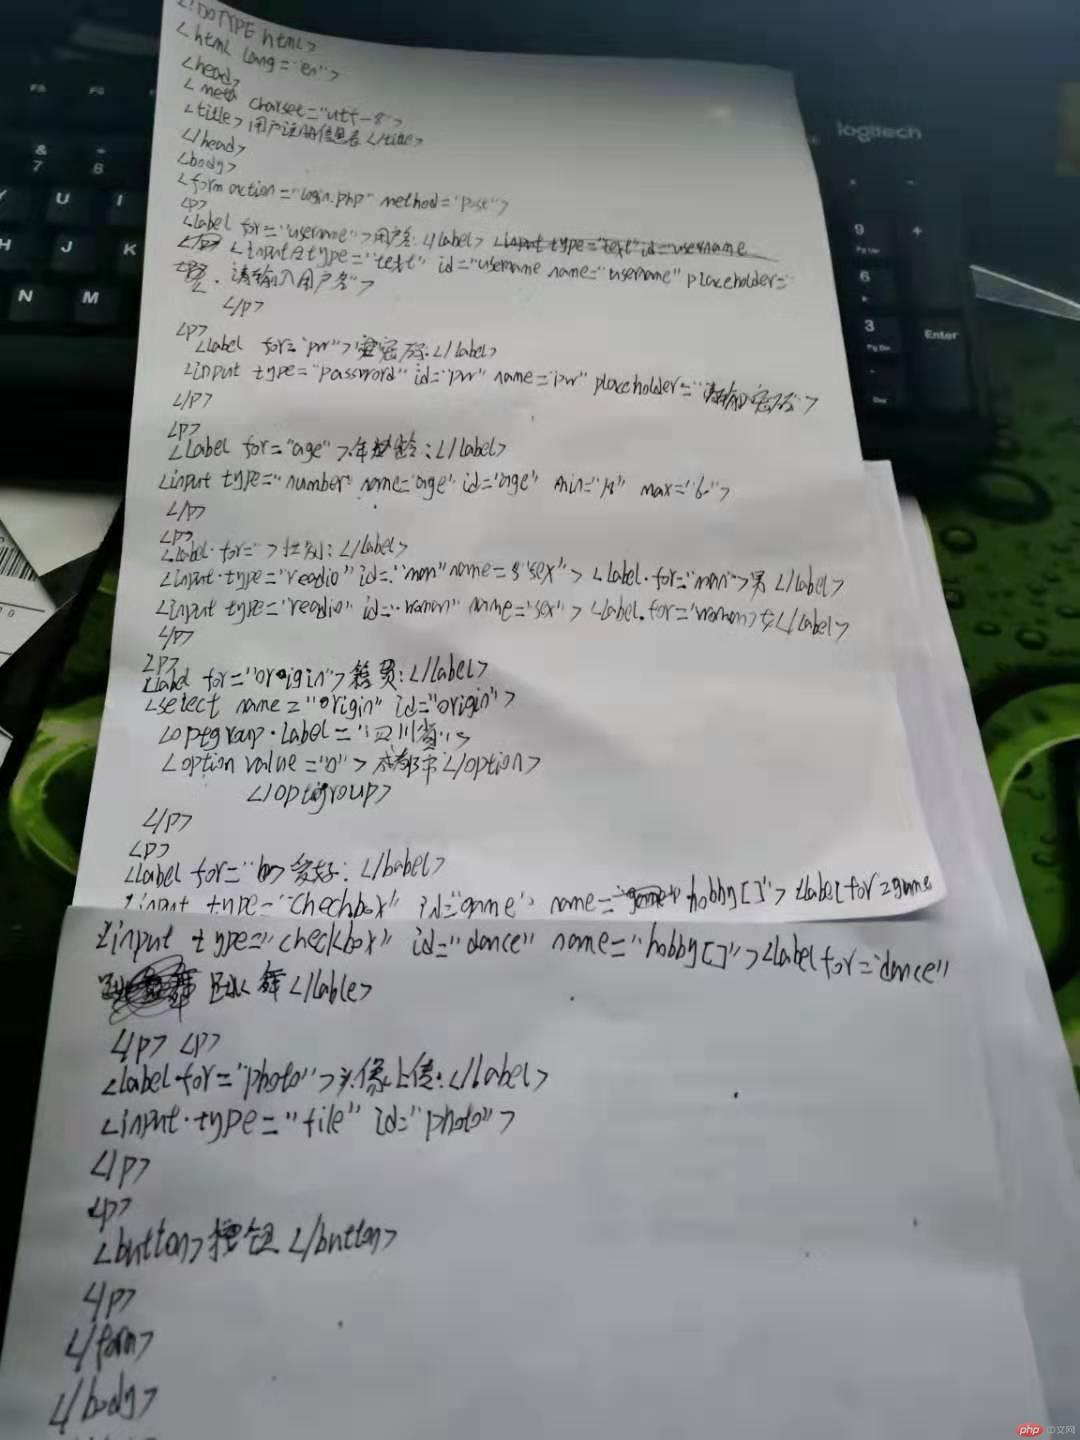 <!DOTYPE html>
<html lang="en">
<head>
<meta charset="utf-8">
<title>用户注册信息表</title>
</head>
<body>
<form action="login.php" method="post">
<p>
<label for="username">用户名:</label>
<input type="text" id="username name="username" placeholder=
请输入用户名">
</p>
<p>
<label for="pw">密码:</label>
<input type="password" id="pw" name="pw" placeholder="请输入密码">
</p>
<p>
<label for="age">年龄:</label>
<input type="number" name="age" id="age" min="18" max="60">
</p>
<p>
<label for="">性别:</label>
<input type="readio" id="man" name="sex"><label for="man">男</label>
<input type="readio" id="woman" name="sex"><label for="woman>女</label>
</p>
<p>
<label for="origin">籍贯:</label>
<select name="origin" id="origin">
<optgroup label="四川省">
<option value="0">成都市</option>
</optigroup>
</p>
<p>
<label for="">爱好:</babel>
<input type="chechbox" id="game" name="hobby[]"><label for=game
<input type="checkbox" id="dance" name="hobby[]"><label for="dance"
跳舞</lable>
</p> <p>
<label for="photo">头像上传:</label>
<input type="file" id="photo">
</p>
<p>
<button>按钮</button>
</p>
</form>
</body>
logitech
F5
F6
&
7
*
8
Y
U
I
H
J
K
N
M
9
Pg Up
+
6
3
Pg Dn
Enter
Del
php 中文网